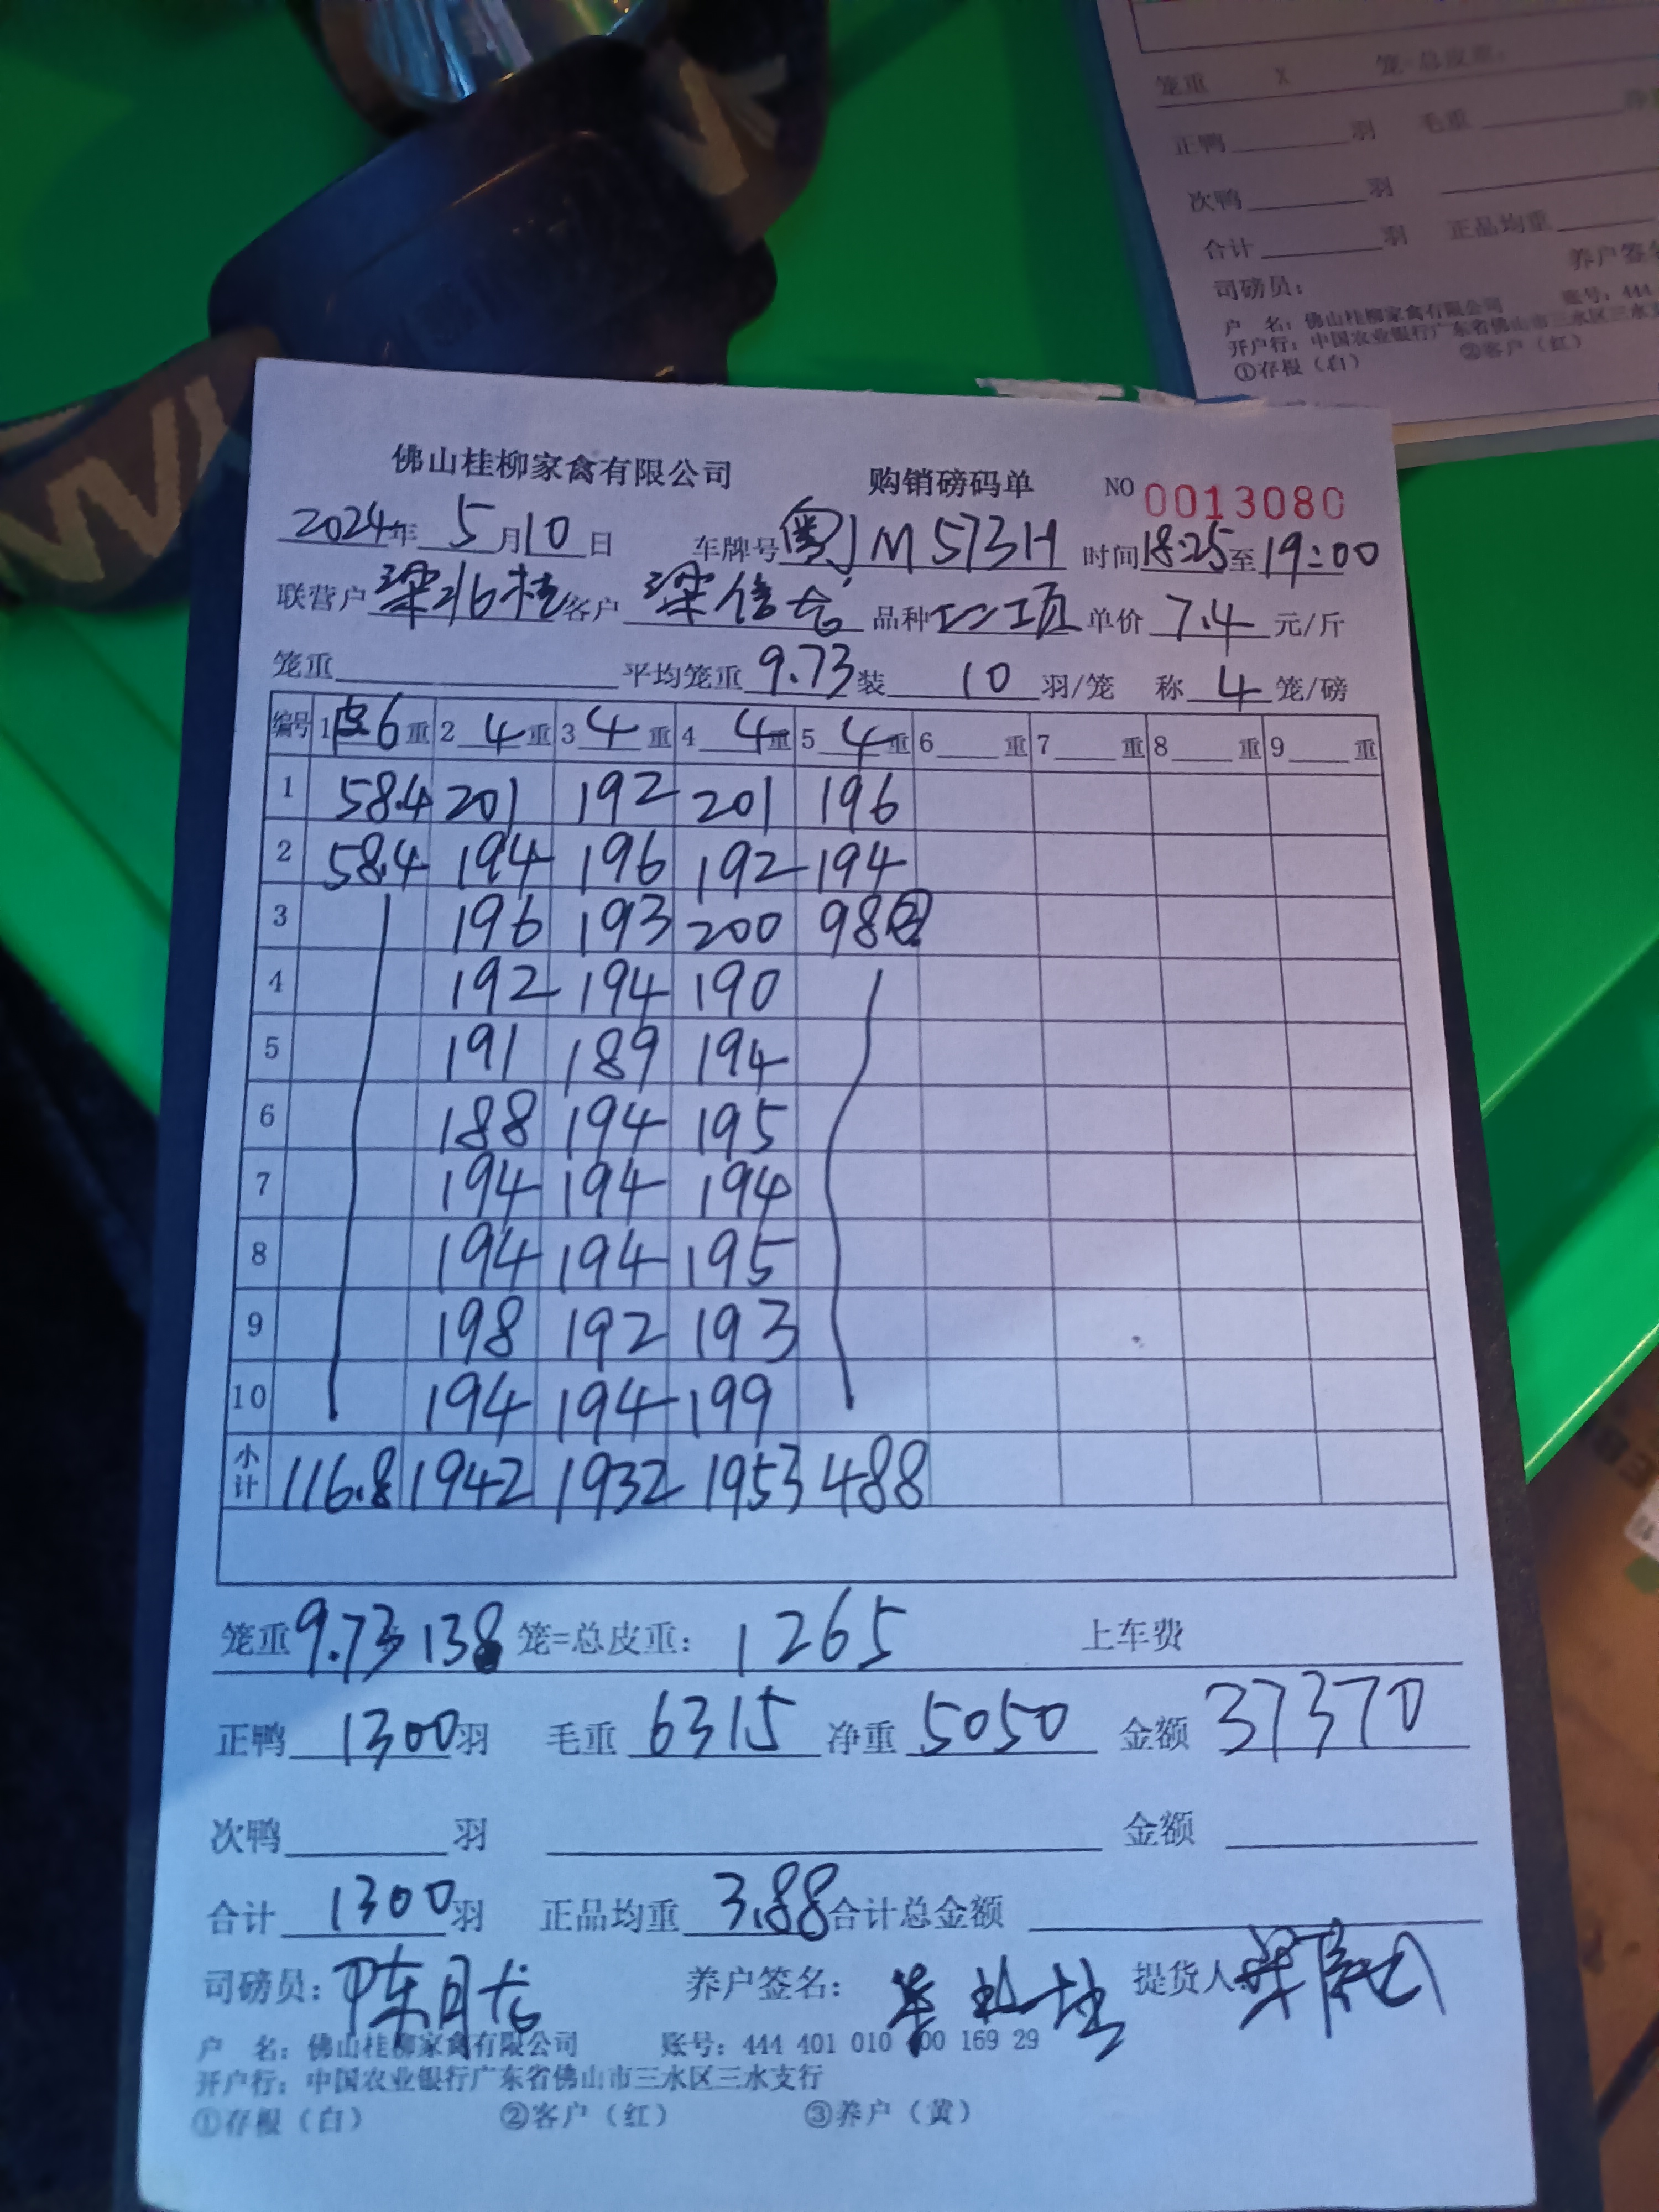 笼重 X 笼=总皮重:
正鸭 羽 毛重
次鸭 羽
合计 羽 正品均重
养户签名
司磅员:
户 名: 佛山桂柳家禽有限公司 账号: 444
开户行: 中国农业银行广东省佛山市三水区三水支
①存根（白） ②客户（红）
佛山桂柳家禽有限公司 购销磅码单 NO 0013080
2024年 5月10日 车牌号粤JM573H 时间18:25至19:00
联营户 梁 桂 客户 梁信 品种 单价 7.4 元/斤
笼重 平均笼重 9.73 装 10 羽/笼 称 4 笼/磅
编号 1 6重 2 4重 3 4重 4 4重 5 4重 6 重 7 重 8 重 9 重
1 58.4 201 192 201 196
2 58.4 194 196 192 194
3 196 193 200 98②
4 192 194 190
5 191 189 194
6 188 194 195
7 194 194 194
8 194 194 195
9 198 192 193
10 194 194 199
小计 116.8 1942 1932 1953 488
笼重9.73 138 笼=总皮重: 1265 上车费
正鸭 1300羽 毛重 6315 净重 5050 金额 37370
次鸭 羽 金额
合计 1300羽 正品均重 3.88 合计总金额
司磅员: 陈月 养户签名: 提货人
户 名: 佛山桂柳家禽有限公司 账号: 444 401 010 400 169 29
开户行: 中国农业银行广东省佛山市三水区三水支行
①存根（白） ②客户（红） ③养户（黄）